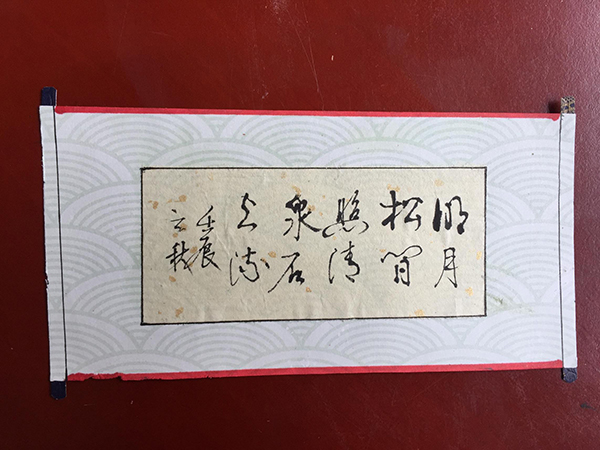 明月
松间
照清
泉石
上流
壬辰
之秋